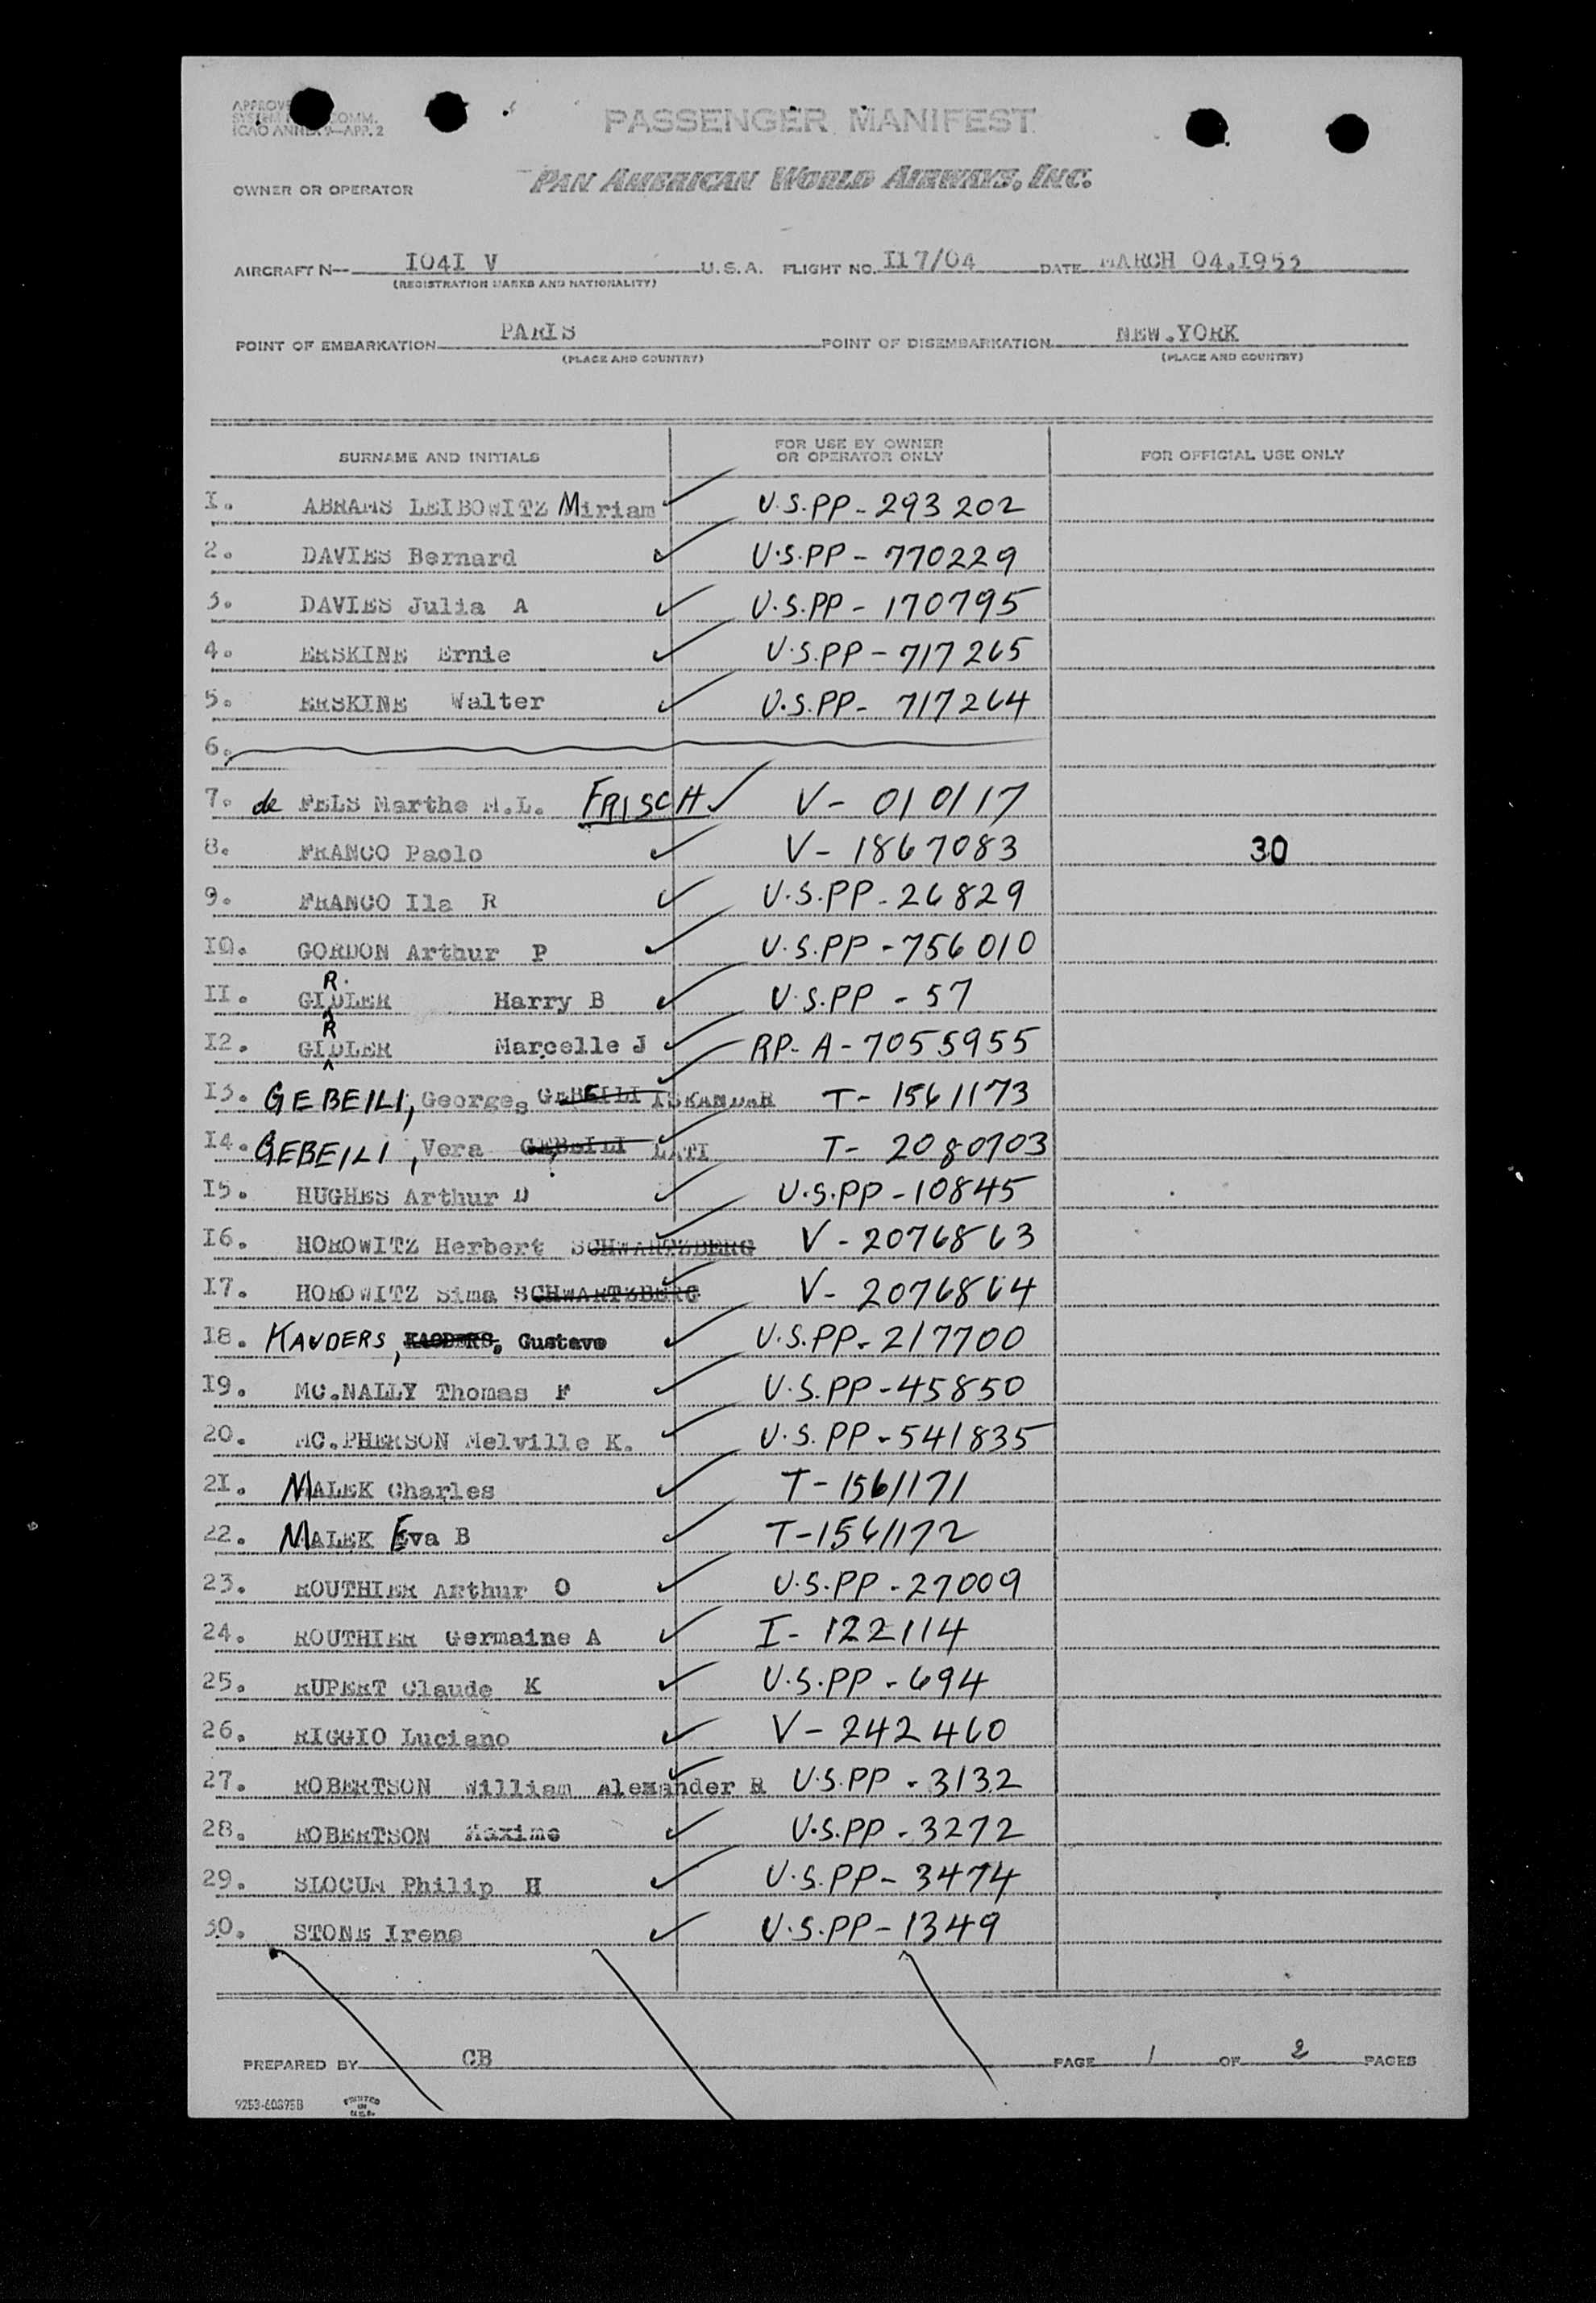 PASSENGER MANIFEST
ICAO ANNEX 9—APP. 2
OWNER OR OPERATOR PAN AMERICAN WORLD AIRWAYS, INC.
AIRCRAFT N— I04I V U.S.A. FLIGHT NO. II7/04 DATE MARCH 04.I953
(REGISTRATION MARKS AND NATIONALITY)
POINT OF EMBARKATION PARIS POINT OF DISEMBARKATION NEW.YORK
(PLACE AND COUNTRY) (PLACE AND COUNTRY)
SURNAME AND INITIALS FOR USE BY OWNER OR OPERATOR ONLY FOR OFFICIAL USE ONLY
I. ABRAMS LEIBOWITZ Miriam U.S.PP - 293202
2. DAVIES Bernard U.S.PP - 770229
3. DAVIES Julia A U.S.PP - 170795
4. ERSKINE Ernie U.S.PP - 717265
5. ERSKINE Walter U.S.PP - 717264
6.
7. de FELS Marthe M.L. FRISCH V - 010117
8. FRANCO Paolo V - 1867083 30
9. FRANCO Ila R U.S.PP - 26829
I0. GORDON Arthur P U.S.PP - 756010
II. GIRDLER Harry B U.S.PP - 57
I2. GIRDLER Marcelle J RP- A - 7055955
I3. GEBEILI, Georges GEBEILI ISKANDAR T - 1561173
I4. GEBEILI, Vera GEBEILI LATI T - 2080703
I5. HUGHES Arthur D U.S.PP - 10845
I6. HOROWITZ Herbert SCHWARTZBERG V - 2076863
I7. HOROWITZ Sima SCHWARTZBERG V - 2076864
I8. KAUDERS, Gustave U.S.PP - 217700
I9. MC.NALLY Thomas F U.S.PP - 45850
20. MC.PHERSON Melville K. U.S.PP - 541835
2I. MALEK Charles T - 1561171
22. MALEK Eva B T - 1561172
23. ROUTHIER Arthur O U.S.PP - 27009
24. ROUTHIER Germaine A I - 122114
25. RUPERT Claude K U.S.PP - 694
26. RIGGIO Luciano V - 242460
27. ROBERTSON William Alexander R U.S.PP - 3132
28. ROBERTSON Maxime U.S.PP - 3272
29. SLOCUM Philip H U.S.PP - 3474
30. STONE Irene U.S.PP - 1349
PREPARED BY CB PAGE 1 OF 2 PAGES
9253-60875B PRINTED IN U.S.A.